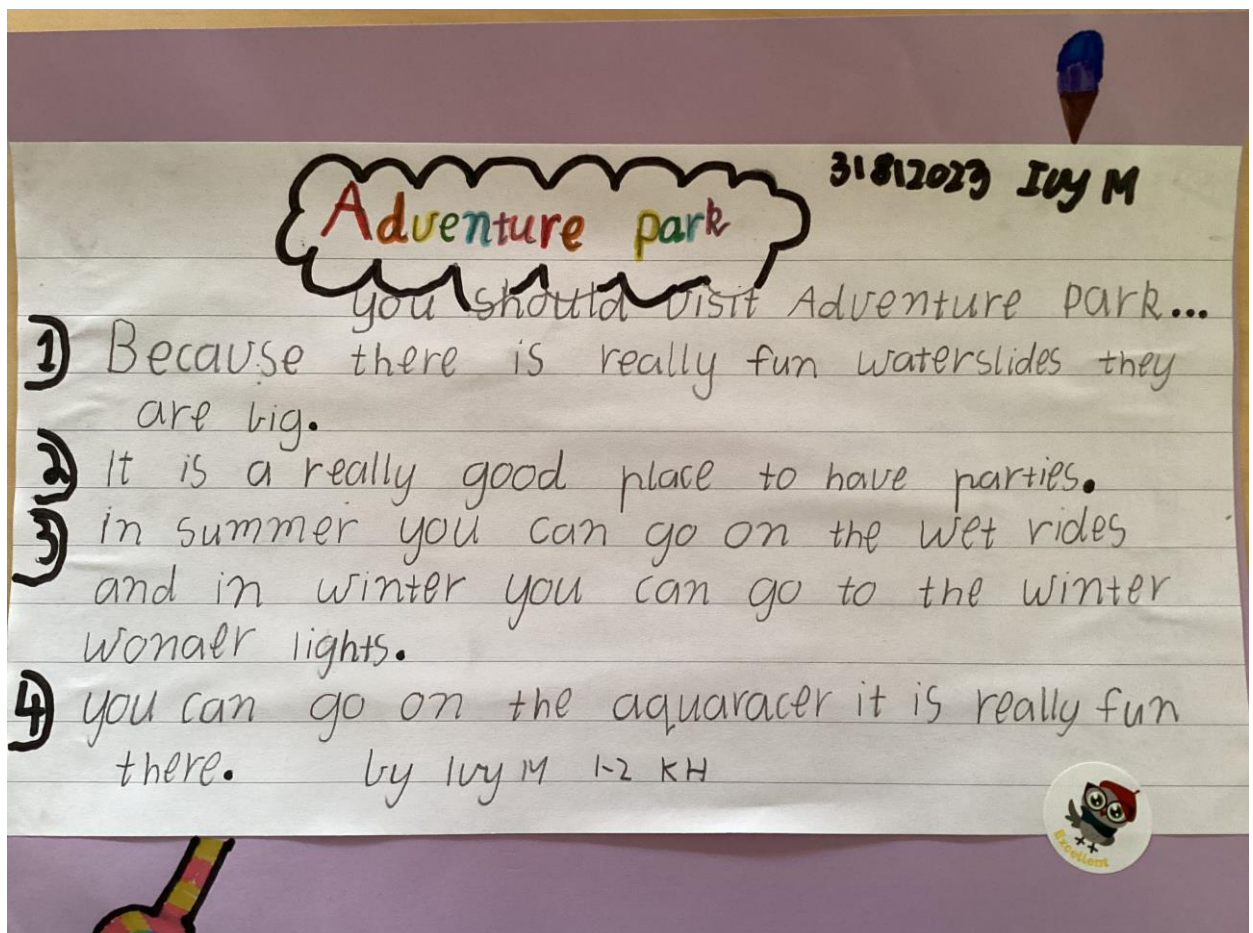 31812023 Ivy M
Adventure park
you should visit Adventure park...
1) Because there is really fun waterslides they
are big.
2) It is a really good place to have parties.
3) in summer you can go on the wet rides
and in winter you can go to the winter
wonder lights.
4) you can go on the aquaracer it is really fun
there. by Ivy M 1-2 KH
Excellent